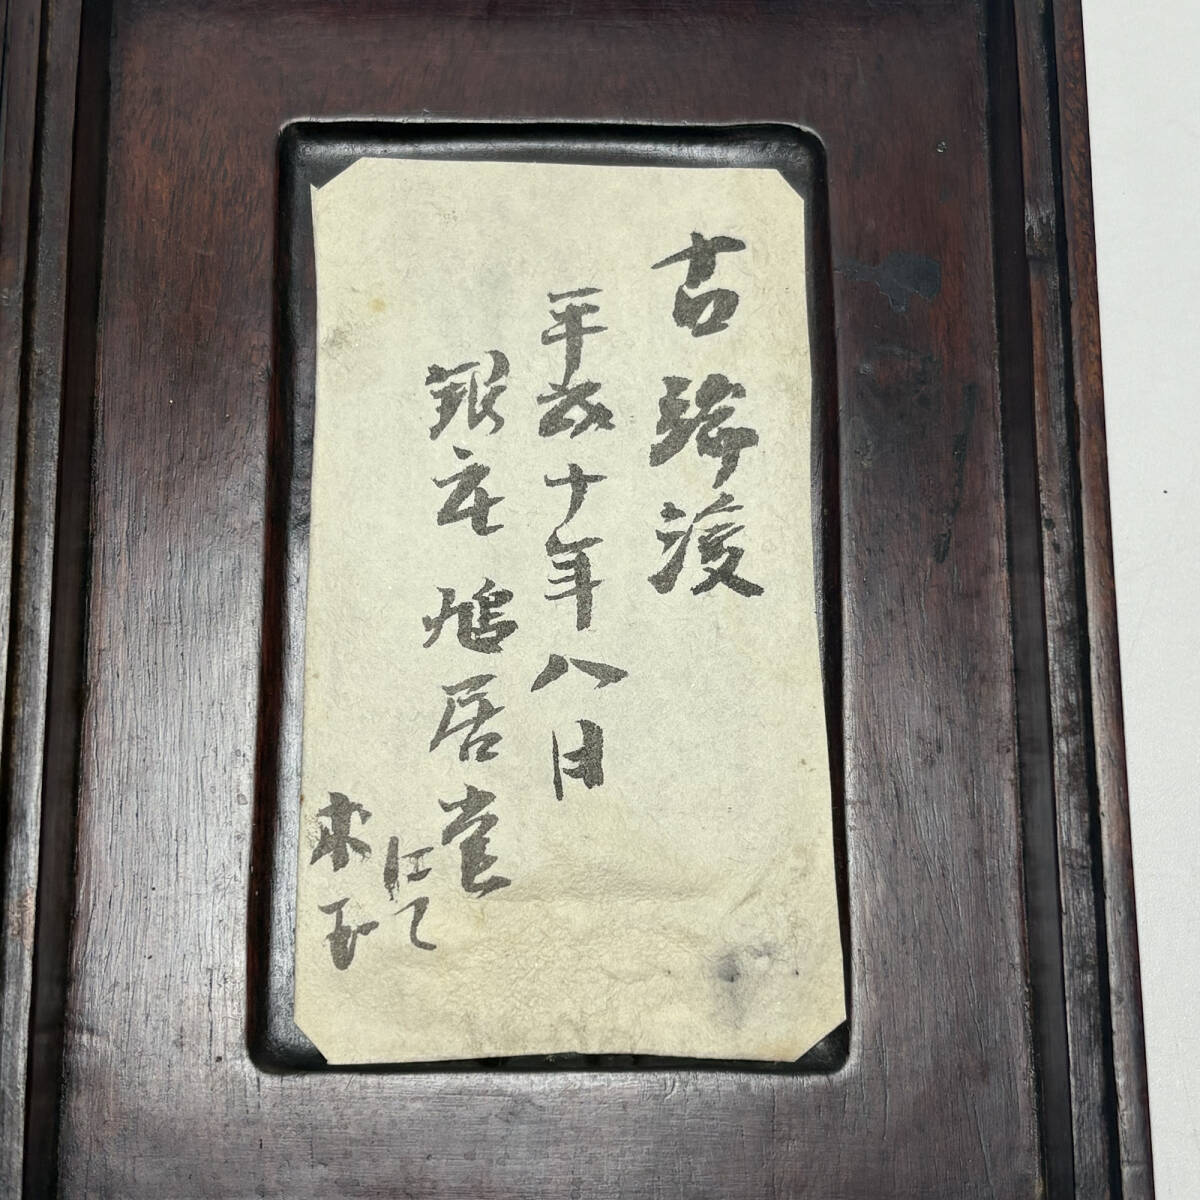 古端渓
平成十年八月
銀座 鳩居堂にて
求む